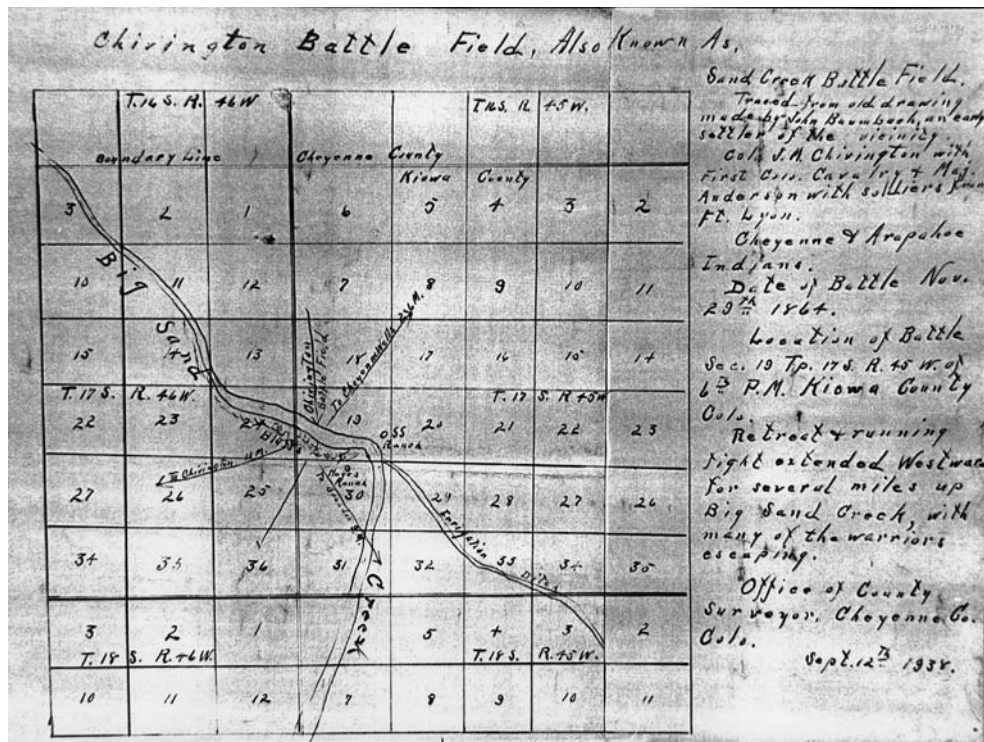 Chivington Battle Field, Also Known As,
Sand Creek Battle Field.
Traced from old drawing
made by John Baumbach, an early
settler of the vicinity.
Col. J. M. Chivington with
First Colo. Cavalry & Maj.
Anderson with soldiers from
Ft. Lyon.
Cheyenne & Arapahoe
Indians.
Date of Battle Nov.
29th 1864.
Location of Battle
Sec. 19 Tp. 17 S. R. 45 W. of
6th P.M. Kiowa County
Colo.
Retreat & running
fight extended Westward
for several miles up
Big Sand Creek, with
many of the warriors
escaping.
Office of County
Surveyor, Cheyenne Co.
Colo.
Sept. 12th 1938.
T. 16 S. R. 46 W
T. 16 S. R. 45 W.
Boundary Line Cheyenne County
Kiowa County
3 2 1 6 5 4 3 2
10 11 12 7 8 9 10 11
15 14 13 18 17 16 15 14
T. 17 S. R. 46 W. T. 17 S. R 45 W
22 23 24 19 20 21 22 23
27 26 25 30 29 28 27 26
34 35 36 31 32 33 34 35
3 2 1 5 4 3 2
T. 18 S. R. 46 W. T. 18 S. R. 45 W.
10 11 12 7 8 9 10 11
Big Sand Creek
Chivington
Battle Field
To Cheyenne Wells
SS
Ranch
Bluffs
To Chivington
Ranch
Irrigation Ditch